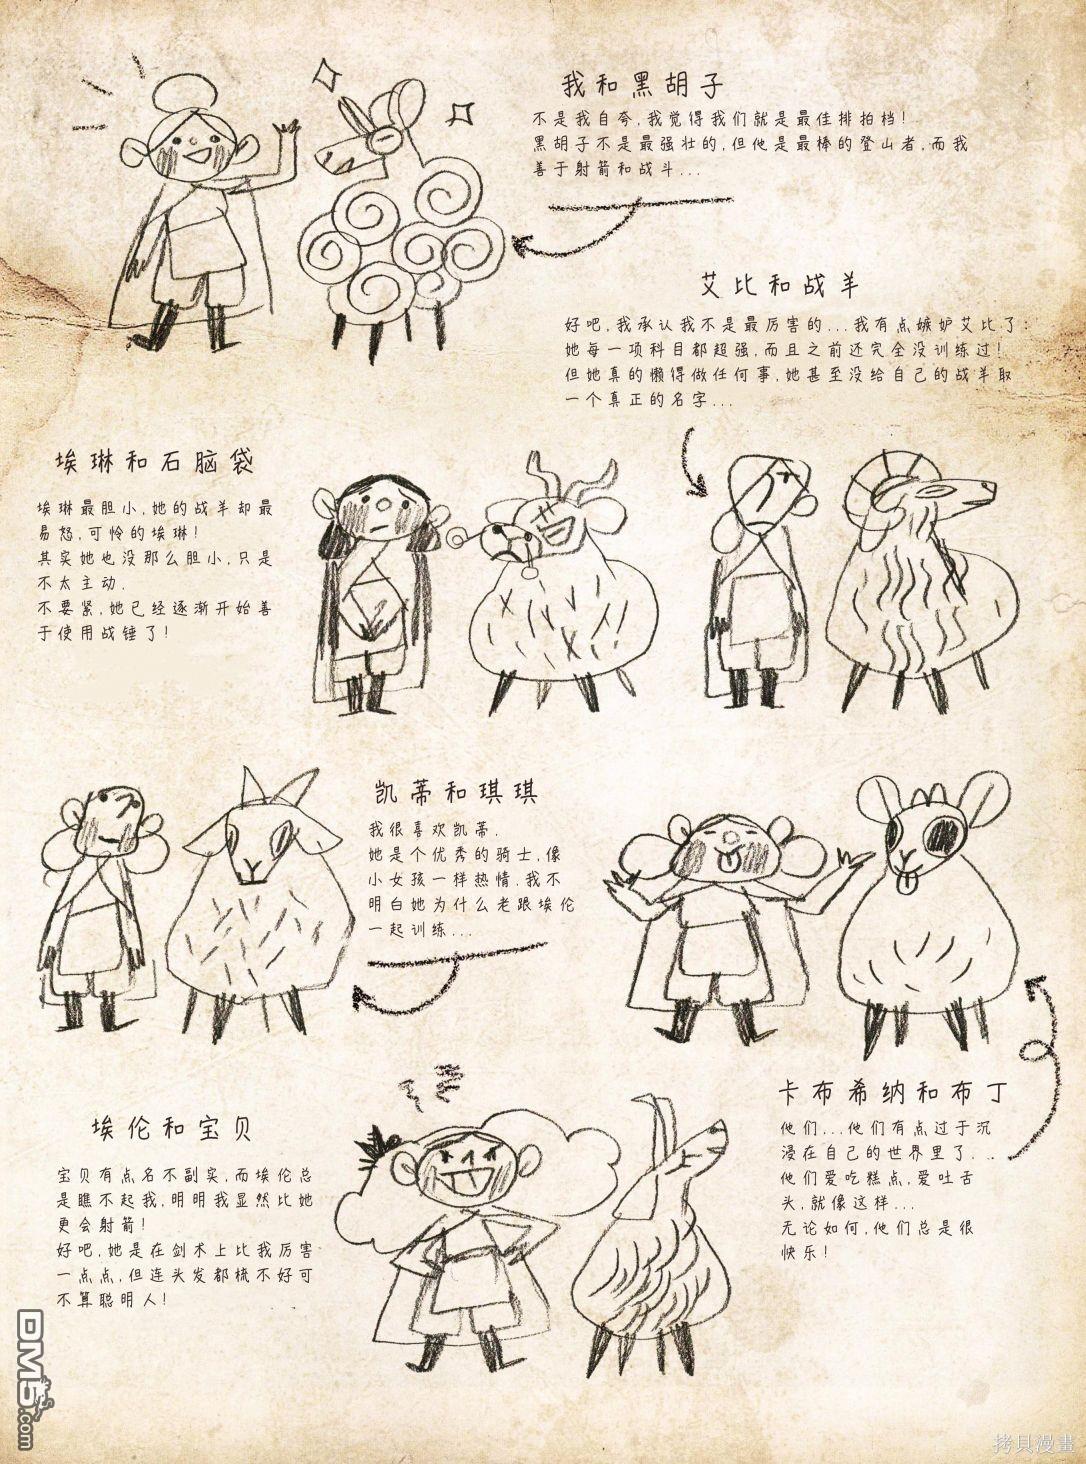 我和黑胡子
不是我自夸,我觉得我们就是最佳排拍档!
黑胡子不是最强壮的,但他是最棒的登山者,而我
善于射箭和战斗...
艾比和战羊
好吧,我承认我不是最厉害的...我有点嫉妒艾比了:
她每一项科目都超强,而且之前还完全没训练过!
但她真的懒得做任何事,她甚至没给自己的战羊取
一个真正的名字...
埃琳和石脑袋
埃琳最胆小,她的战羊却最
易怒,可怜的埃琳!
其实她也没那么胆小,只是
不太主动.
不要紧,她已经逐渐开始善
于使用战锤了!
凯蒂和琪琪
我很喜欢凯蒂.
她是个优秀的骑士,像
小女孩一样热情.我不
明白她为什么老跟埃伦
一起训练...
卡布希纳和布丁
他们...他们有点过于沉
浸在自己的世界里了...
他们爱吃糕点,爱吐舌
头,就像这样...
无论如何,他们总是很
快乐!
埃伦和宝贝
宝贝有点名不副实,而埃伦总
是瞧不起我,明明我显然比她
更会射箭!
好吧,她是在剑术上比我厉害
一点点,但连头发都梳不好可
不算聪明人!
DM5.com
拷貝漫畫